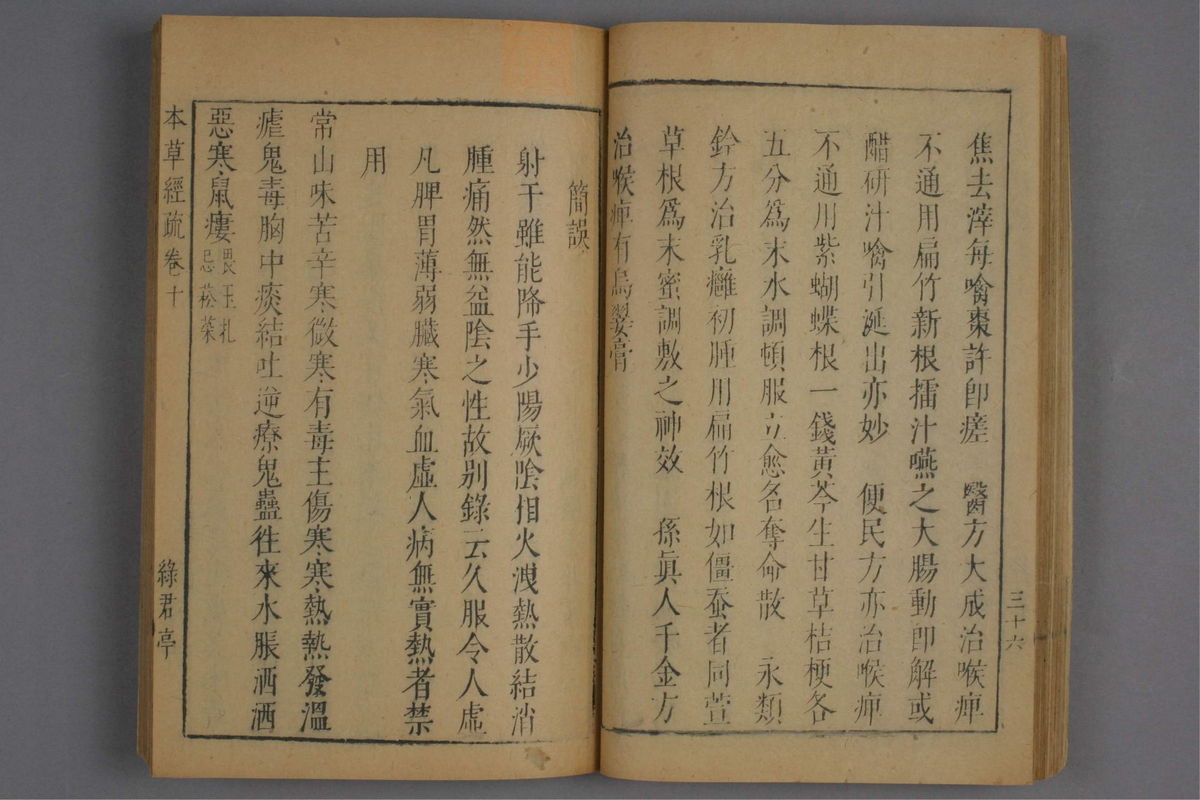 焦去滓每噙棗許卽瘥　醫方大成治喉痺
不通用扁竹新根擂汁嚥之大腸動卽解或
醋硏汁噙引涎出亦妙　便民方亦治喉痺
不通用紫蝴蝶根一錢黃芩生甘草桔梗各
五分爲末水調頓服立愈名奪命散　永類
鈐方治乳癰初腫用扁竹根如僵蚕者同萱
草根爲末蜜調敷之神效　孫眞人千金方
治喉痺有烏翣膏
三十六
簡誤
射干雖能降手少陽厥陰相火洩熱散結消
腫痛然無益陰之性故别錄云久服令人虛
凡脾胃薄弱臟寒氣血虛人病無實熱者禁
用
常山味苦辛寒微寒有毒主傷寒寒熱熱發溫
瘧鬼毒胸中痰結吐逆療鬼蠱徃來水脹洒洒
惡寒鼠瘻畏玉札忌菘菜
本草經疏 卷十
綠君亭